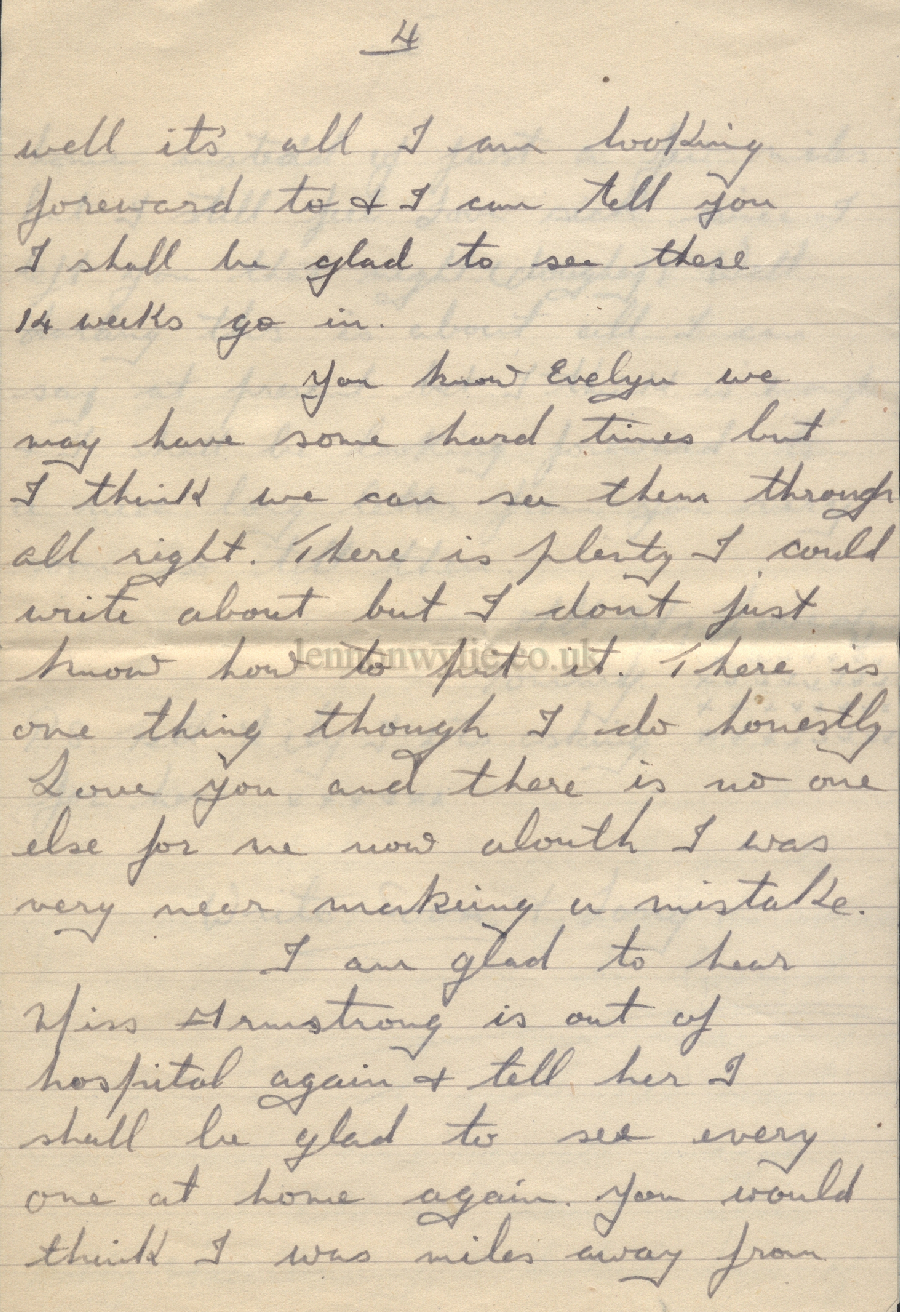 4
well it's all I am looking
foreward to & I can tell you
I shall be glad to see these
14 weeks go in.
You know Evelyn we
may have some hard times but
I think we can see them through
all right. There is plenty I could
write about but I dont just
know how to put it. There is
lennonwylie.co.uk
one thing though I do honestly
Love you and there is no one
else for me now alouth I was
very near makeing a mistake.
I am glad to hear
Miss Armstrong is out of
hospital again & tell her I
shall be glad to see every
one at home again. You would
think I was miles away from